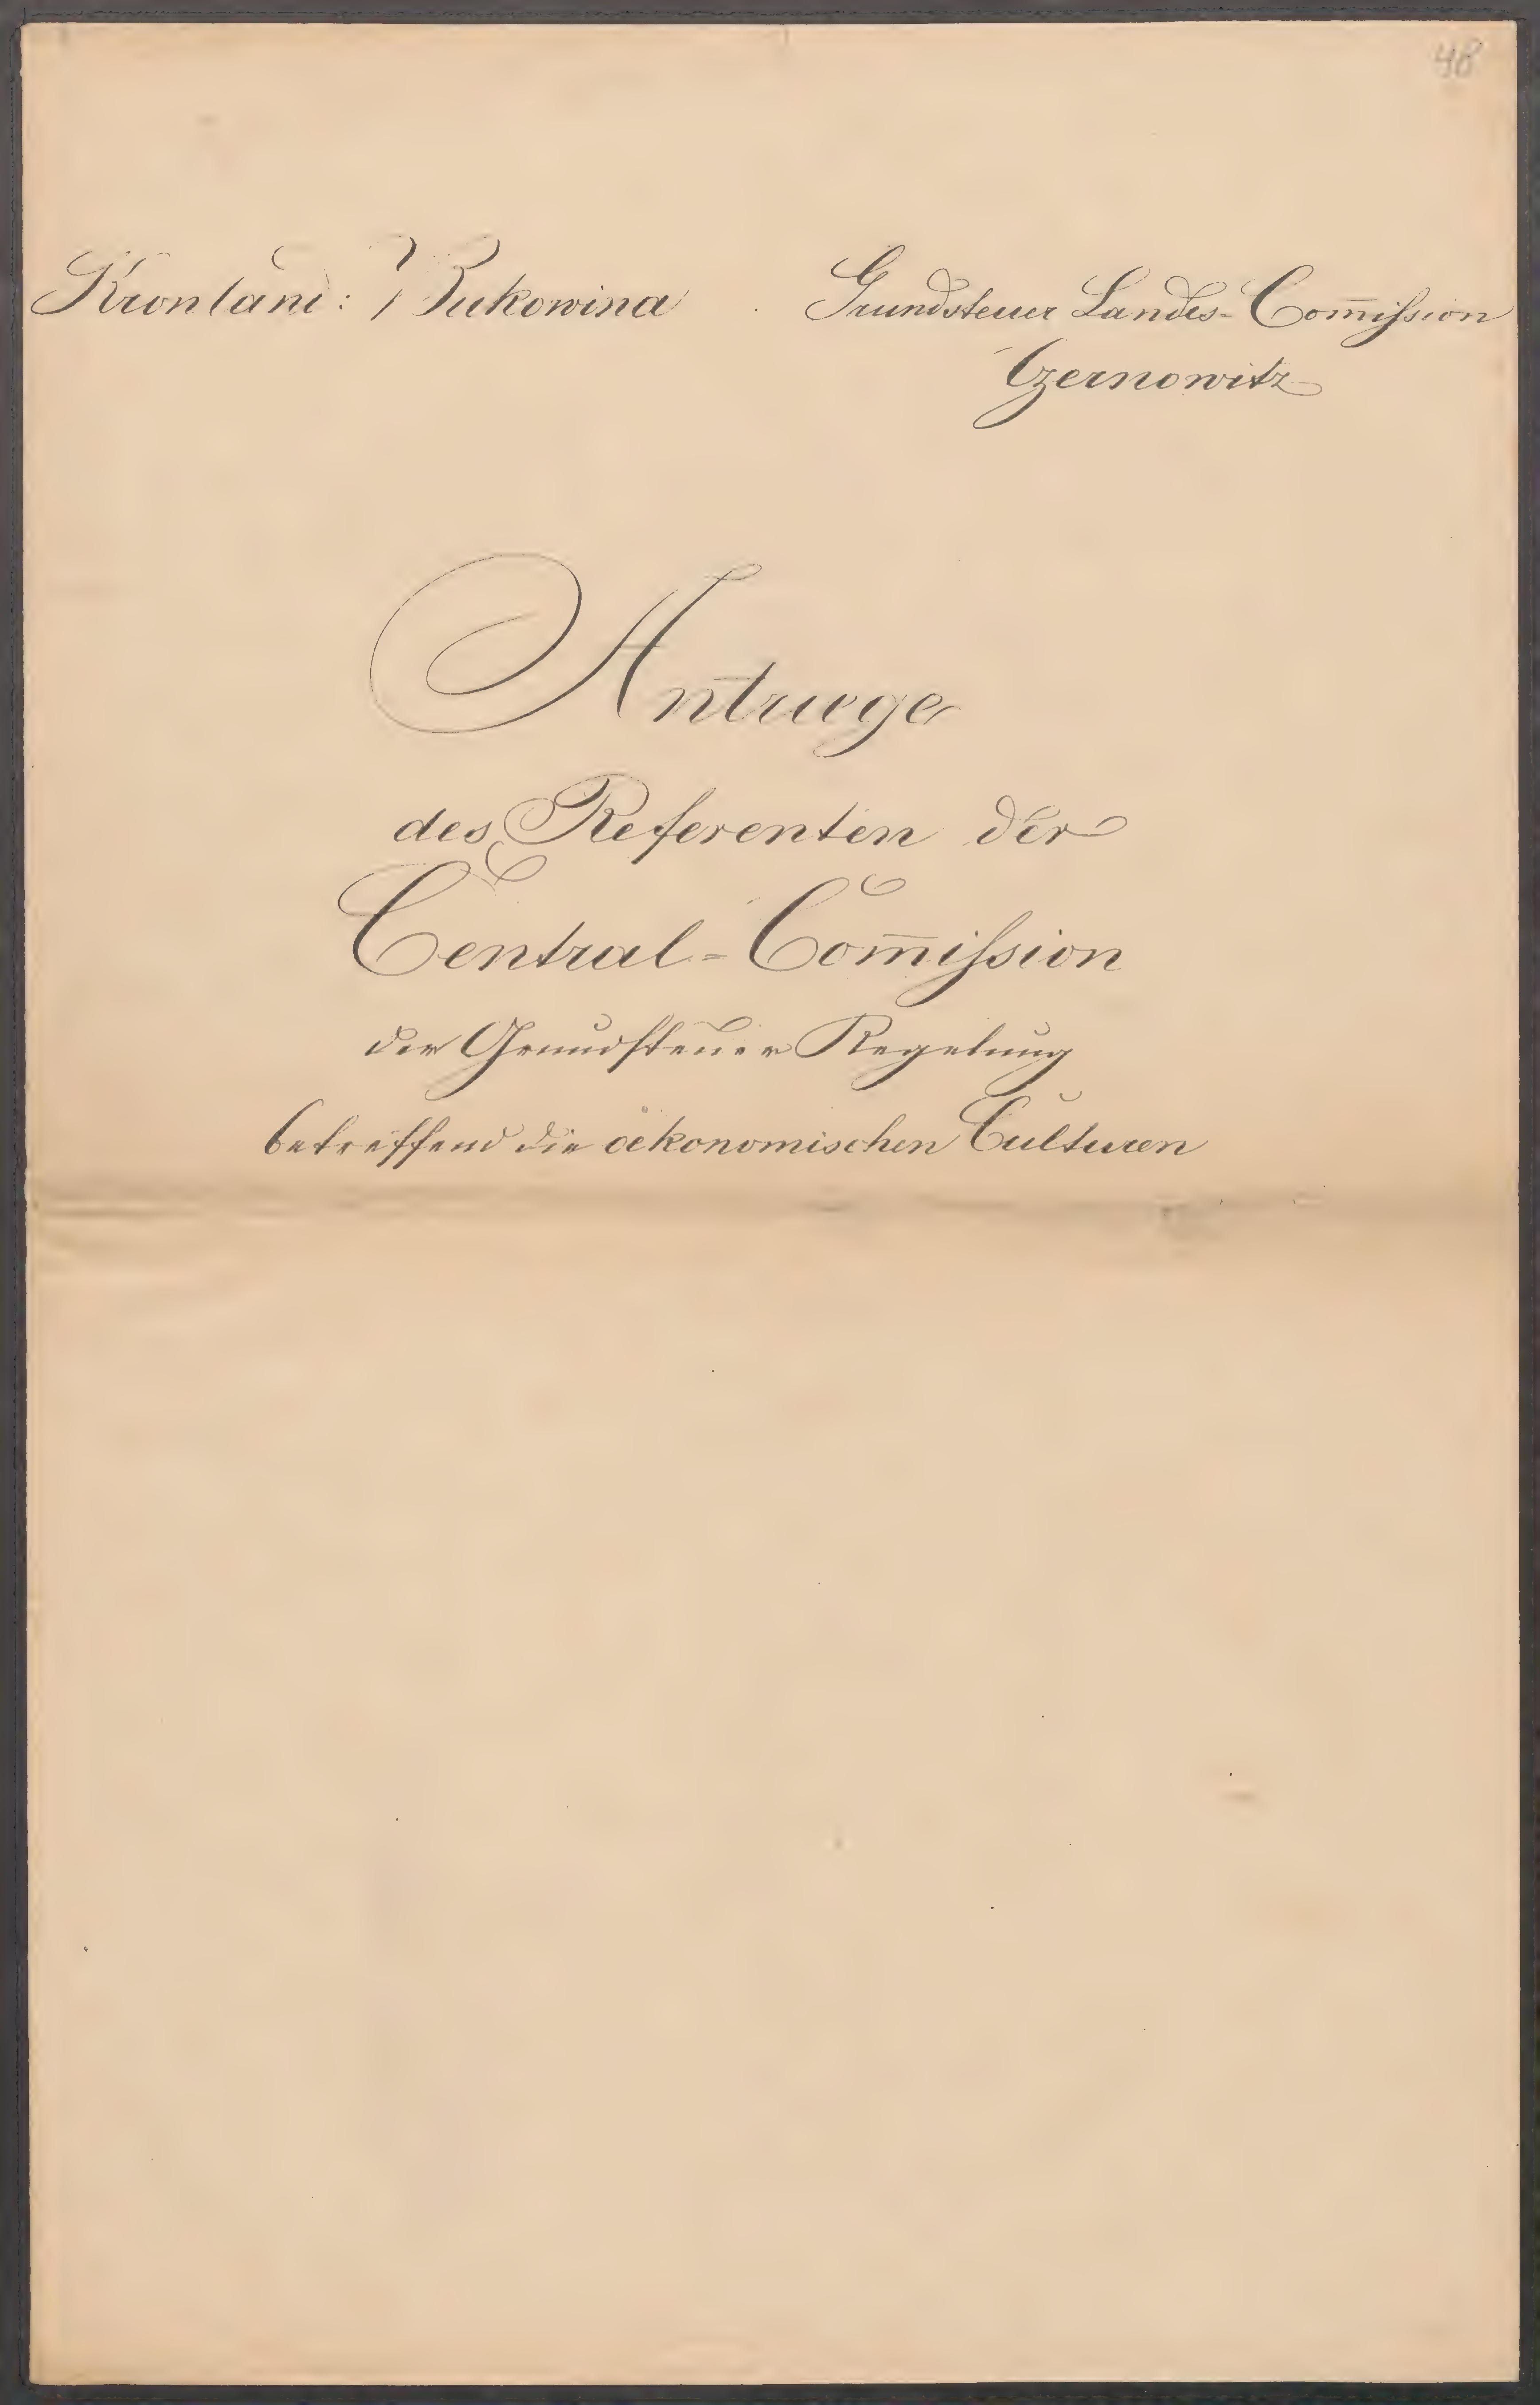 48
Kronland: Bukowina
Grundsteuer Landes-Com̅ission
Czernowitz
Antraege
des Referenten der
Central-Com̅ission
der Grundsteuer Regelung
betreffend die oekonomischen Culturen